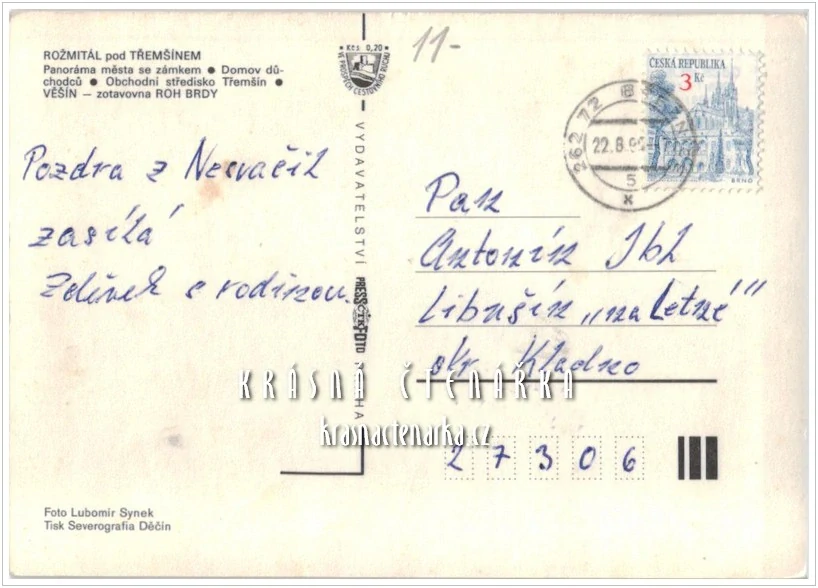 ROŽMITÁL pod TŘEMŠÍNEM
Panoráma města se zámkem ● Domov dů-
chodců ● Obchodní středisko Třemšín ●
VĚŠÍN — zotavovna ROH BRDY
Kčs 0,20
VE PROSPĚCH CESTOVNÍHO RUCHU
11-
ČESKÁ REPUBLIKA
3 Kč
BRNO
262 72
22.8.95
5
x
Pozdra z Nesvačil
zasílá
Zdivek s rodinou.
VYDAVATELSTVÍ PRESSFOTO PRAHA
Pan
Antonín Ibl
Libušín „na Letné"
okr. Kladno
KRÁSNÁ ČTENÁŘKA
krasnactenarka.cz
27306
Foto Lubomír Synek
Tisk Severografia Děčín